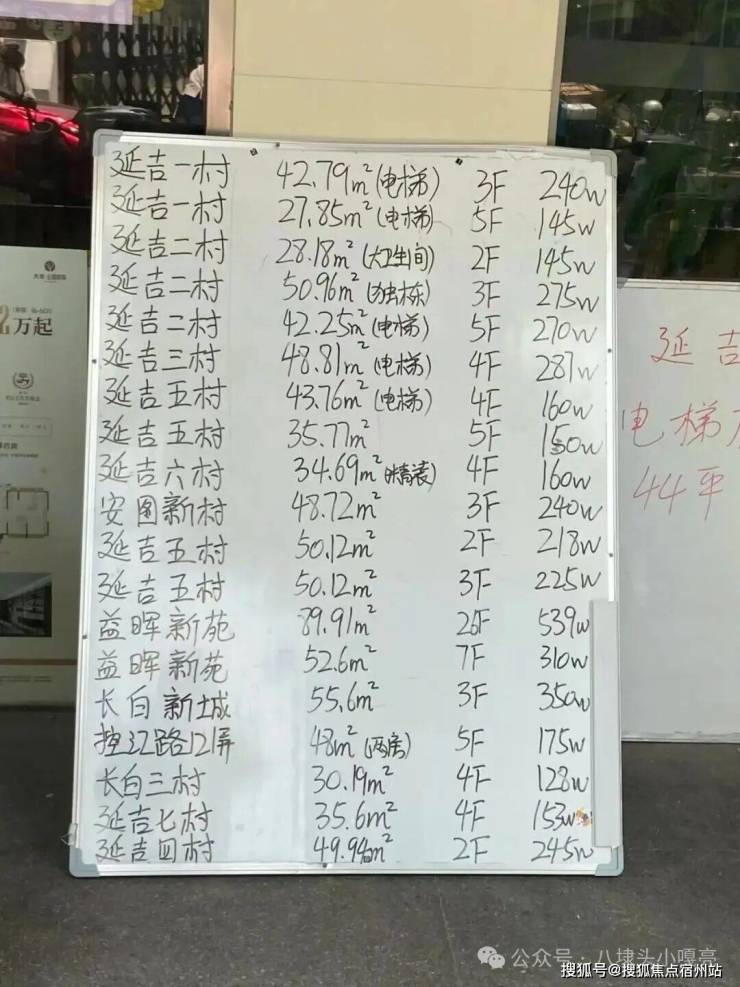 延吉一村 42.79m²(电梯) 3F 240w
延吉一村 27.85m²(电梯) 5F 145w
延吉二村 28.18m²(大卫生间) 2F 145w
延吉二村 50.96m²(独栋) 3F 275w
延吉二村 42.25m²(电梯) 5F 270w
延吉三村 48.81m²(电梯) 4F 287w
延吉五村 43.76m²(电梯) 4F 160w
延吉五村 35.77m² 5F 150w
延吉六村 34.69m²(精装) 4F 160w
安图新村 48.72m² 3F 240w
延吉五村 50.12m² 2F 218w
延吉五村 50.12m² 3F 225w
益晖新苑 89.91m² 26F 539w
益晖新苑 52.6m² 7F 310w
长白新城 55.6m² 3F 350w
控江路121弄 48m²(两房) 5F 175w
长白三村 30.19m² 4F 128w
延吉七村 35.6m² 4F 153w
延吉四村 49.94m² 2F 245w
延吉
电梯
44平
2万起
公众号·八埭头小嘎亮
搜狐号@搜狐焦点宿州站